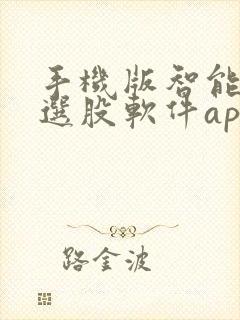 手機版智能
選股軟件ap
路金波